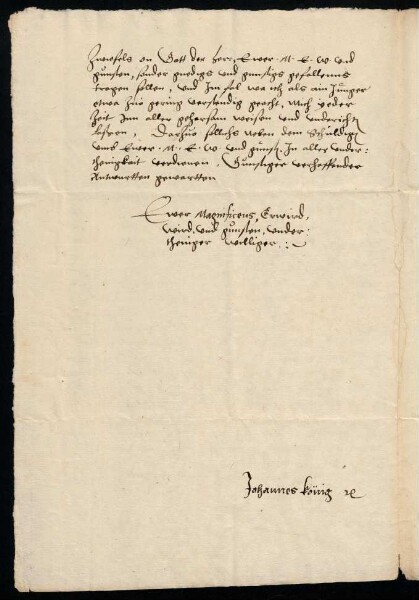 Zweifels on Gott der herr, Ewer. M. E. W. und
gunsten, sonder gnedigs und gunstigs gefallenns
tragen sollen, und Im fal wa ich als ain Junger
etwa zuo gering verstendig geacht, Mich yeder
Zeit Inn aller gehorsam weisen und undericht
lassen, Darzuo sollichs neben dem Schuldig
umb Ewer. M. E. W. und gunst. In aller under:
thenigkait verdienen. Gunstiger verhoffender
Antwurtten gewartten
Ewer Magnificens, Erwird,
wird. und gunsten, under:
theniger williger :
Johannes König